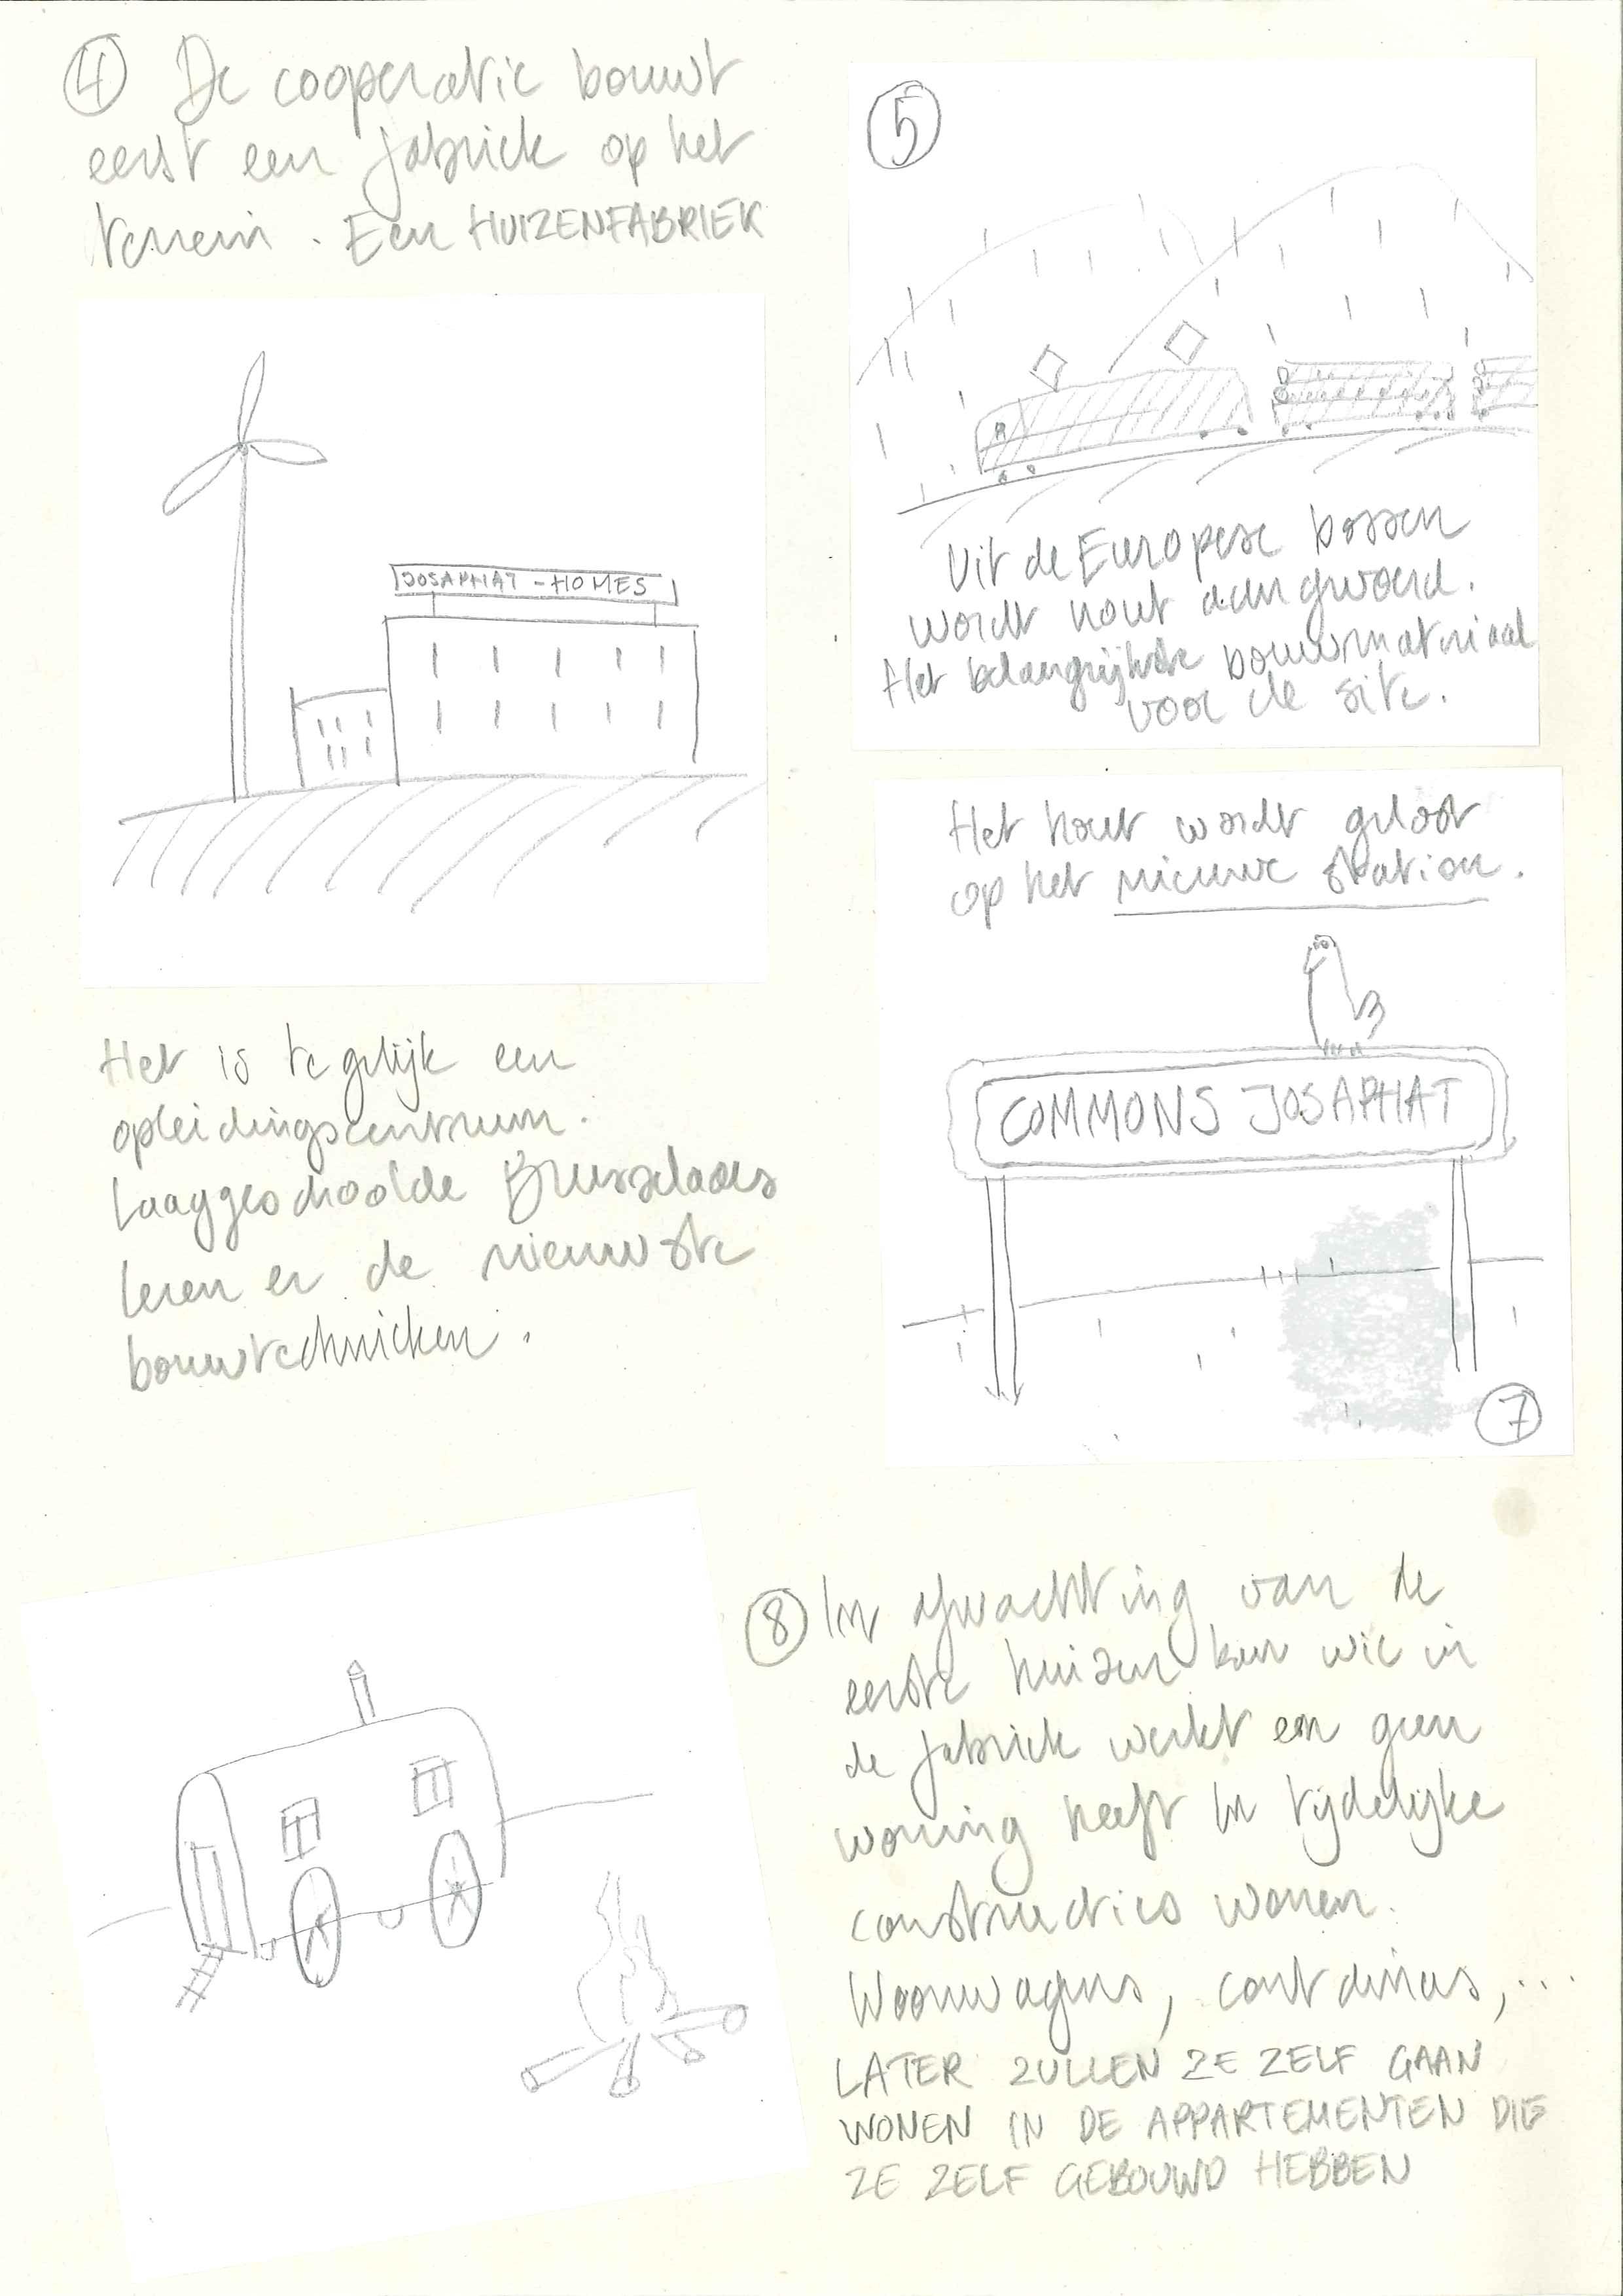 ④ De cooperatie bouwt
eerst een fabriek op het
terrein. Een HUIZENFABRIEK
JOSAPHAT - HOMES
Het is tegelijk een
opleidingscentrum.
Laaggeschoolde Brusselaars
leren er de nieuwste
bouwtechnieken.
⑤
Uit de Europese bossen
wordt hout aangevoerd.
Het belangrijkste bouwmateriaal
voor de site.
Het hout wordt gelost
op het nieuwe station.
COMMONS JOSAPHAT
⑦
⑧ In afwachting van de
eerste huizen kan wie in
de fabriek werkt en geen
woning heeft in tijdelijke
constructies wonen.
Woonwagens, containers, ...
LATER ZULLEN ZE ZELF GAAN
WONEN IN DE APPARTEMENTEN DIE
ZE ZELF GEBOUWD HEBBEN